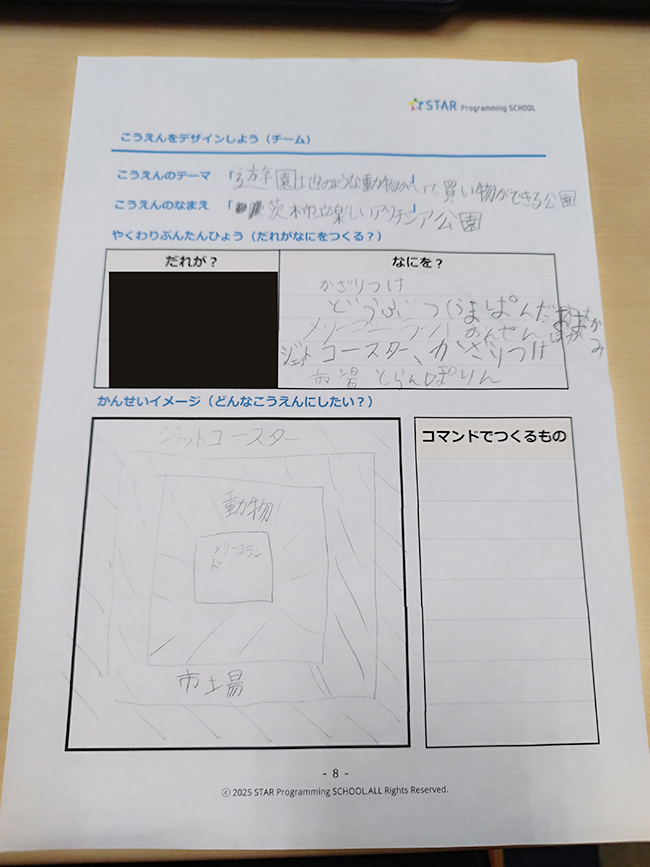 STAR Programming SCHOOL
こうえんをデザインしよう（チーム）
こうえんのテーマ 「遊園地のような動物がいて買い物ができる公園」
こうえんのなまえ 「茨木市立楽しいアリヂシア公園」
やくわりぶんたんひょう（だれがなにをつくる？）
だれが？ なにを？
かざりつけ
どうぶつ(うまぱんだ
メリーゴーランド おんせん
ジェットコースター、かざりつけ
市場 とらんぽりん
かんせいイメージ（どんなこうえんにしたい？）
ジェットコースター
動物
メリーゴラン
ド
市場
コマンドでつくるもの
- 8 -
© 2025 STAR Programming SCHOOL.ALL Rights Reserved.